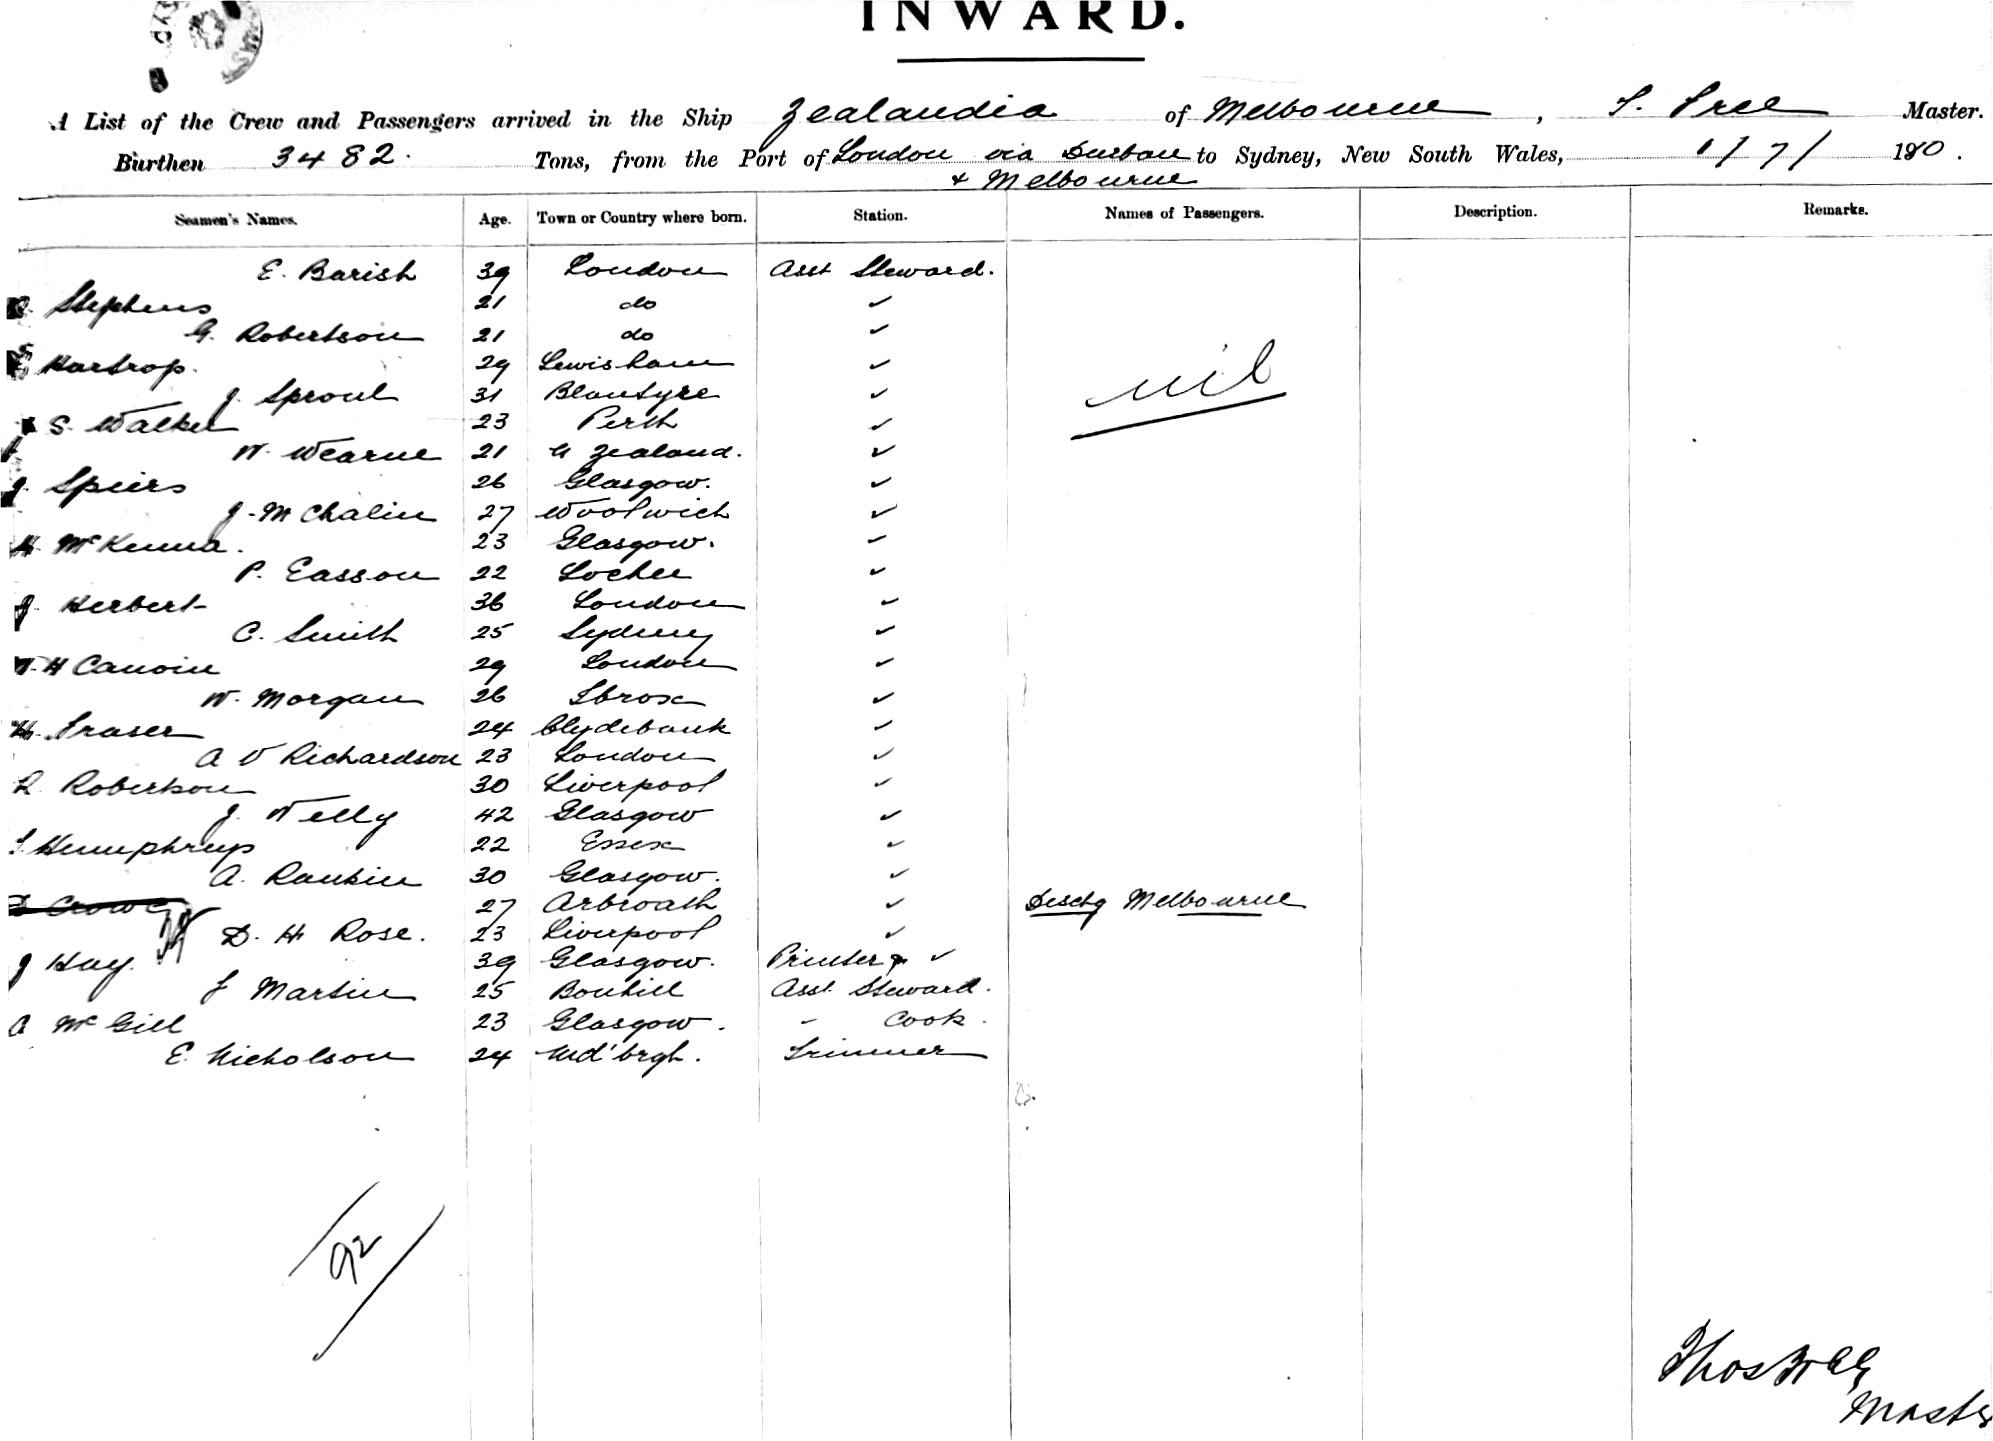 INWARD.
A List of the Crew and Passengers arrived in the Ship Zealandia of Melbourne, T. Free Master.
Burthen 3482. Tons, from the Port of London via Durban to Sydney, New South Wales, 1/7/ 190.
& Melbourne
Seamen's Names. Age. Town or Country where born. Station. Names of Passengers. Description. Remarks.
E. Barish 39 London Asst Steward.
Stephens 21 do ✓
G. Robertson 21 do ✓
Hartrop. 29 Lewisham ✓
nil
J. Sproul 31 Blantyre ✓
S. Walker 23 Perth ✓
W. Wearne 21 N Zealand. ✓
J. Spiers 26 Glasgow. ✓
J. McChalin 27 Woolwich ✓
H. McKenna. 23 Glasgow. ✓
P. Easson 22 Lochee ✓
J. Herbert 36 London ✓
C. Smith 25 Sydney ✓
W. H Canoin 29 London ✓
W. Morgan 26 Ibrox ✓
H. Fraser 24 Clydebank ✓
A V Richardson 23 London ✓
R. Robertson 30 Liverpool ✓
J. Welly 42 Glasgow ✓
Humphreys 22 Essex ✓
A. Rankin 30 Glasgow. ✓
Crowe 27 Arbroath ✓ Deschg Melbourne
D. H Rose. 23 Liverpool ✓
J Hay. 39 Glasgow. Printer ✓
J Martin 25 Bonhill Asst. Steward.
A McGill 23 Glasgow. - Cook.
E. Nicholson 24 Md'brgh. Trimmer
/92/
Thos Free
Master